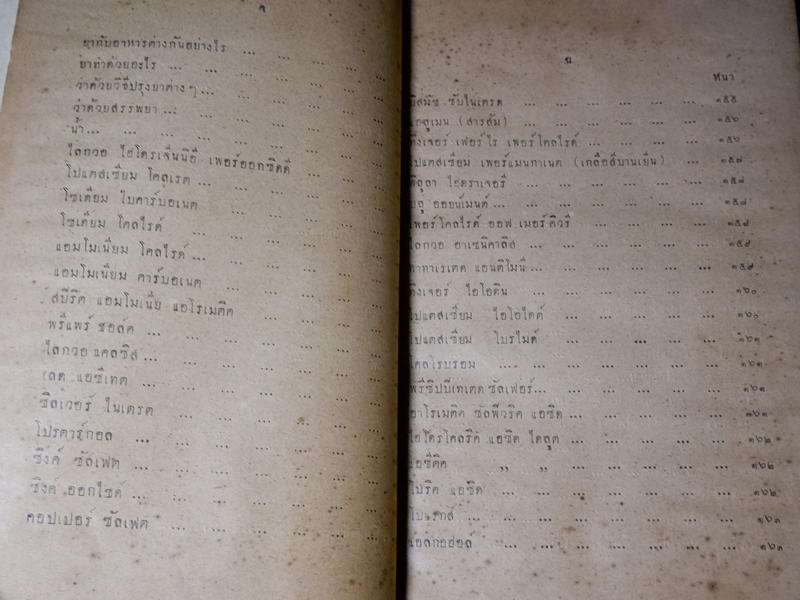 ยากับอาหารต่างกันอย่างไร ... ... ... ...
ยาทำด้วยอะไร ... ... ... ... ...
ว่าด้วยวิธีปรุงยาต่าง ๆ ... ... ... ...
ว่าด้วยสรรพยา ... ... ... ... ...
น้ำ... ... ... ... ... ... ...
ไลกวอ ไฮโดรเจ็นนิอี เพอร์ออกซิดดี
โปแตสเซียม โคลเรต ... ... ... ...
โซเดียม ไบคาร์บอเนต ... ... ... ...
โซเดียม โคลไรด์ ... ... ... ...
แอมโมเนียม โคลไรด์ ... ... ... ...
แอมโมเนียม คาร์บอเนต ... ... ...
สปิริต แอมโมเนีย แอโรเมติค ... ...
พรีแพร์ ชอล์ค ... ... ... ...
ไลกวอ แคลซิส ... ... ... ... ...
เลด แอซีเทต ... ... ... ...
ซิลเวอร์ ไนเตรต ... ... ... ...
โปรตาร์กอล ... ... ... ...
ซิงค์ ซัลเฟต ... ... ... ...
ซิงค์ ออกไซด์ ... ... ... ...
คอปเปอร์ ซัลเฟต ... ... ... ...
ฉ
หน้า
บิสมัธ ซับไนเตรต ... ... ... ... ... ๑๕๕
(สารส้ม) ... ... ... ... ๑๕๖
ทิงเจอร์ เฟอร์ไร เพอร์โคลไรด์ ... ... ... ๑๕๖
โปแตสเซียม เพอร์แมนกาเนต (เกลือสีบานเย็น) ... ๑๕๗
พิลูลา ไฮดราเจอรี ... ... ... ... ... ๑๕๘
บลู ออยน์เมนต์ ... ... ... ... ... ๑๕๘
เพอร์โคลไรด์ ออฟ เมอร์คิวรี ... ... ... ๑๕๘
ไลกวอ อาเซนิคาลิส ... ... ... ... ๑๕๙
ทาทาเรเตด แอนติโมนี ... ... ... ... ๑๕๙
ทิงเจอร์ ไอโอดิน ... ... ... ... ๑๖๐
โปแตสเซียม ไอโอไดด์ ... ... ... ...
โปแตสเซียม โบรไมด์ ... ... ... ... ๑๖๑
คลโรบรอม ... ... ... ... ... ๑๖๑
พรีซิปปิเทเตด ซัลเฟอร์... ... ... ... ๑๖๑
อาโรเมติค ซัลฟิวริค แอซิด ... ... ... ... ๑๖๑
ไฮโดรโคลริค แอซิด ไดลูต ... ... ... ... ๑๖๒
แอซีติค ,, ,, ... ... ... ... ๑๖๒
โบริค แอซิด ... ... ... ... ... ๑๖๒
โบแรกส์ ... ... ... ... ... ... ๑๖๓
แอลกอฮอล์ ... ... ... ... ... ๑๖๓